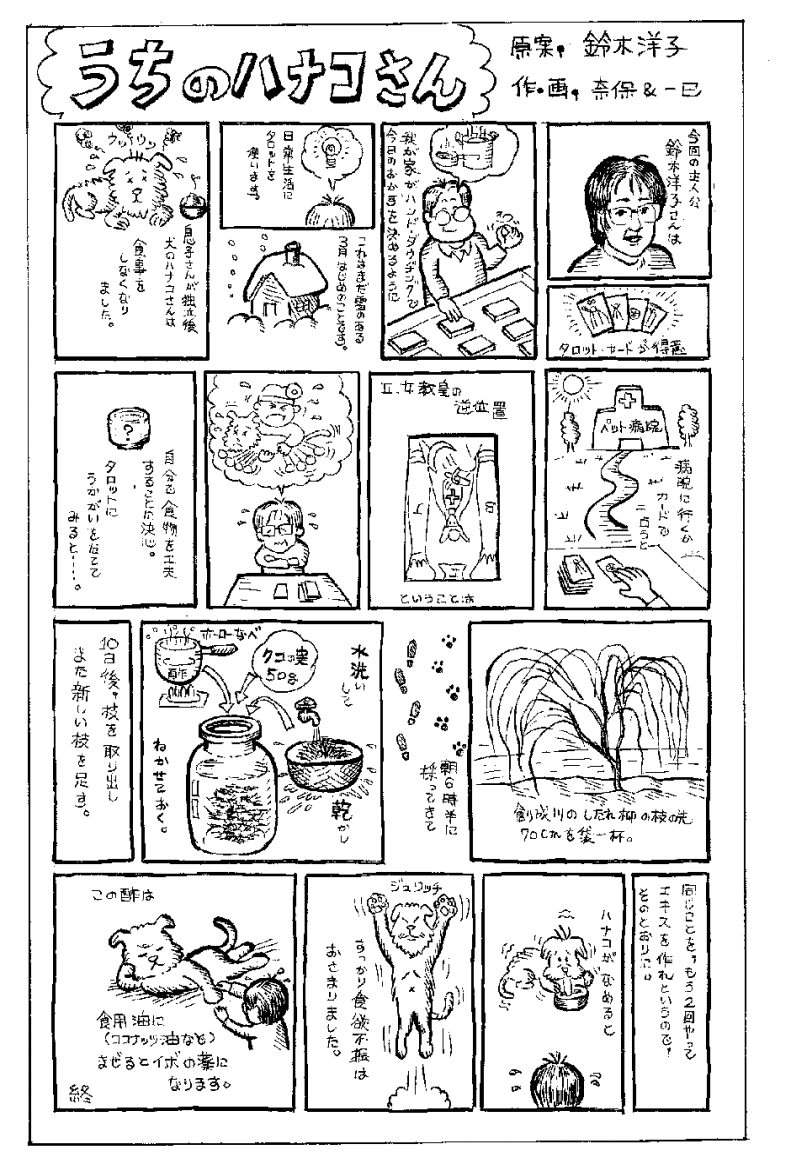 うちのハナコさん
原案，鈴木洋子
作・画，奈保＆一巳
今回の主人公
鈴木洋子さんは
タロット・カードが得意
我が家がハンド・ダウジングで
今日のおかずを決めるように
日常生活に
タロットを
使います。
これはまだ雪のある
3月はじめのことです。
クッ
ウッ
息子さんが独立後
犬のハナコさんは
食事を
しなくなり
ました。
ペット病院
病院に行くか
カードで
占うと
II.女教皇の
逆位置
ということは
自分で食物を工夫
することに決心。
タロットに
うかがいをたてて
みると‥‥。
?
創成川のしだれ柳の枝の先
70cmを袋一杯。
朝6時半に
採ってきて
水洗い
して
乾かし
ホーローなべ
酢
クコの実
50g
ねかせておく。
10日後，枝を取り出し
また新しい枝を足す。
同じことを，もう2回やって
エキスを作れというので，
そのとおりに。
ハナコがなめると
ジュリッチ
すっかり食欲不振は
おさまりました。
この酢は
食用油に
(ココナッツ油など)
まぜるとイボの薬に
なります。
終